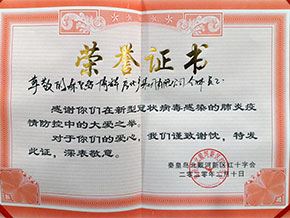 荣誉证书
尊敬的
有限公司全体员工:
感谢你们在新型冠状病毒感染的肺炎疫
情防控中的大爱之举。
对于你们的爱心,我们谨致谢忱,特发
此证,深表敬意。
秦皇岛北戴河新区红十字会
二〇二〇年二月十日